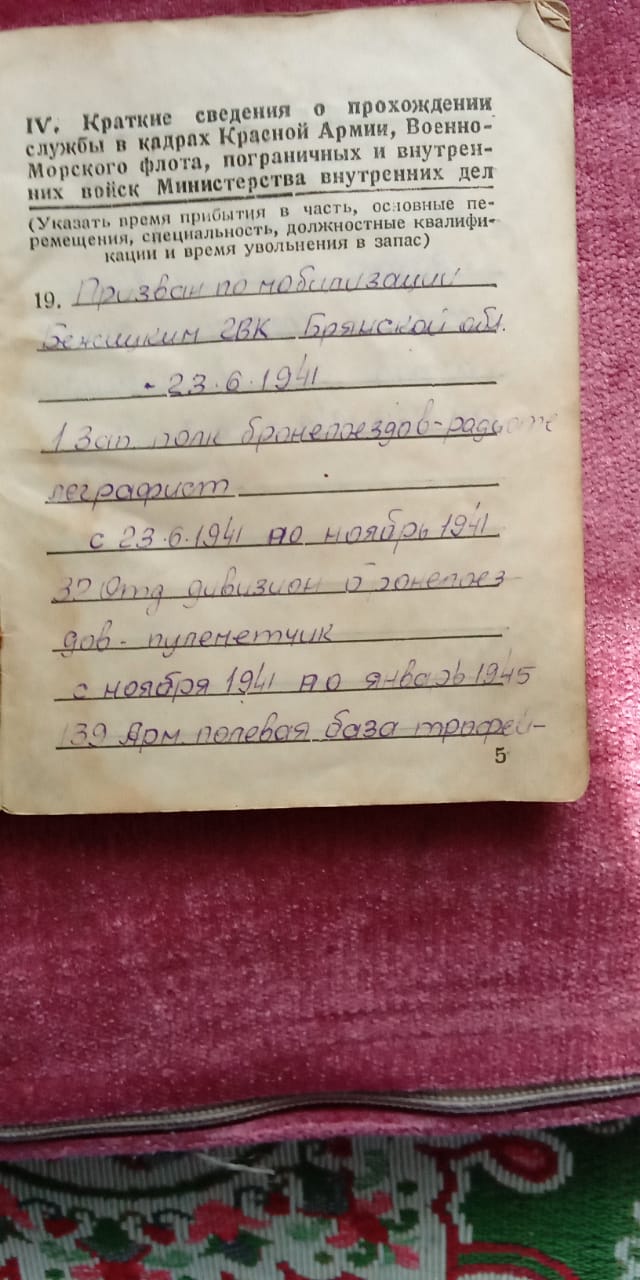 IV. Краткие сведения о прохождении
службы в кадрах Красной Армии, Военно-
Морского флота, пограничных и внутрен-
них войск Министерства внутренних дел
(Указать время прибытия в часть, основные пе-
ремещения, специальность, должностные квалифи-
кации и время увольнения в запас)
19. Призван по мобилизации
Бежицким ГВК Брянской обл.
- 23.6.1941
1 Зап. полк бронепоездов-радиоте
леграфист
с 23.6.1941 по ноябрь 1941
Отд дивизион бронепоез
дов - пулеметчик
с ноября 1941 по январь 1945
139 Арм. полевая база трофей-
5